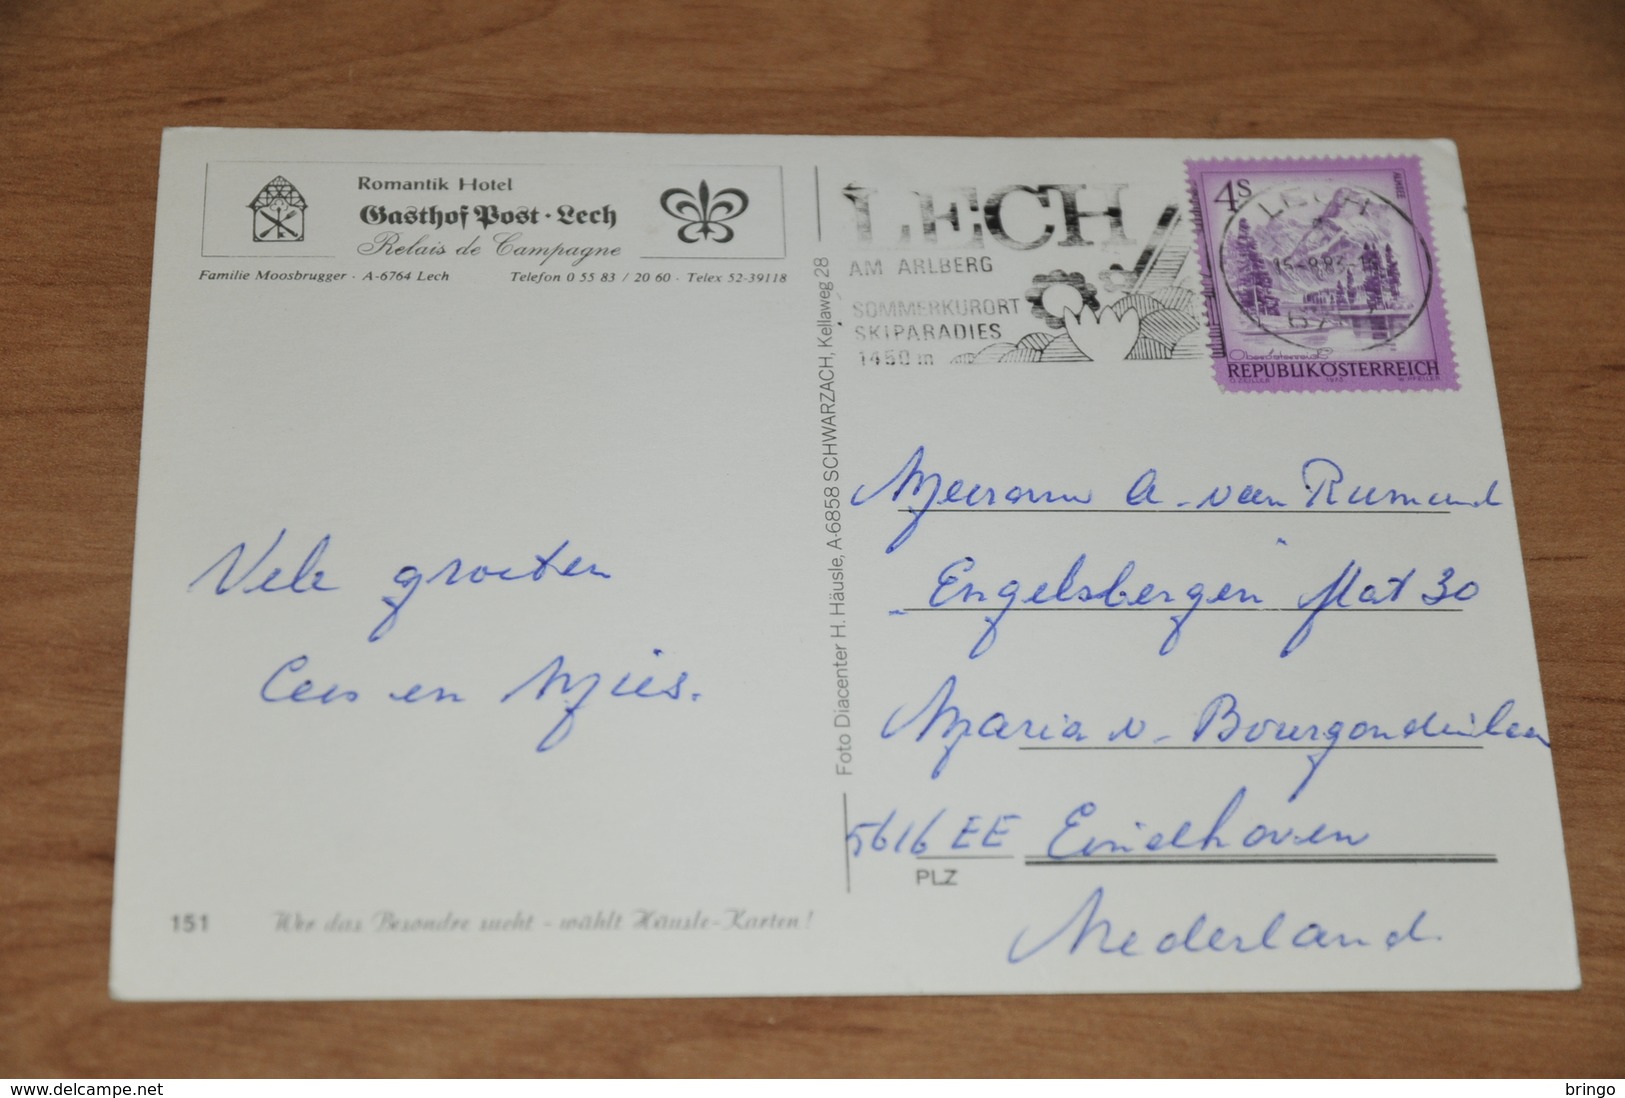 Romantik Hotel
Gasthof Post · Lech
Relais de Campagne
Familie Moosbrugger · A-6764 Lech
Telefon 0 55 83 / 20 60 · Telex 52-39118
LECH
AM ARLBERG
SOMMERKURORT
SKIPARADIES
1450 m
4S
ALMSEE
LECH
Oberösterreich
REPUBLIK ÖSTERREICH
Foto Diacenter H. Häusle, A-6858 SCHWARZACH, Kellaweg 28
Vele groeten
Cees en Mies.
Mevrouw A. van Rumund
"Engelsbergen" flat 30
Maria v. Bourgondielaan
5616 EE Eindhoven
PLZ
Nederland.
151
Wer das Besondre sucht - wählt Häusle-Karten!
www.delcampe.net
bringo